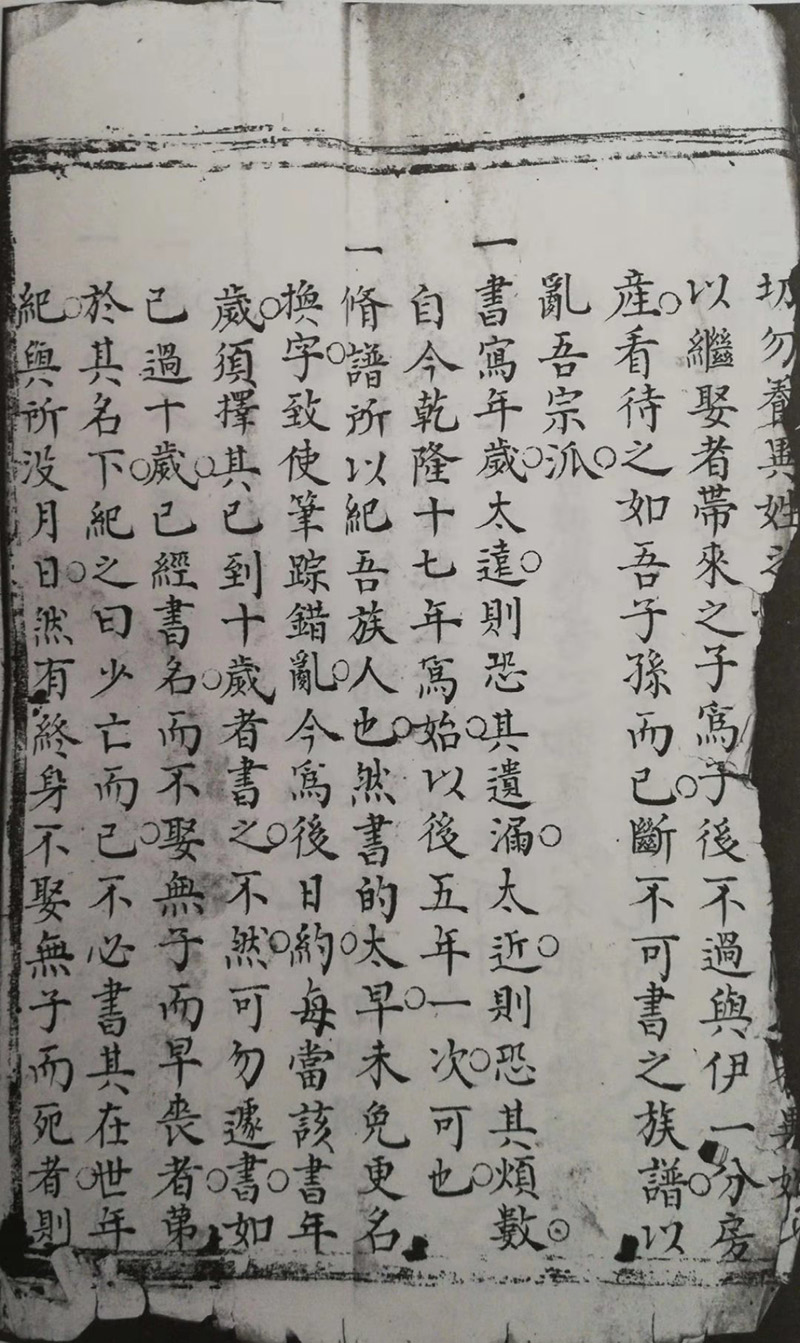 切勿養異姓之
以繼娶者帶來之子爲子後不過與伊一分房
産看待之如吾子孫而已斷不可書之族譜以
亂吾宗派
一書寫年歲太遠則恐其遺漏太近則恐其煩數
自今乾隆十七年爲始以後五年一次可也
一脩譜所以紀吾族人也然書的太早未免更名
換字致使筆踪錯亂今爲後日約每當該書年
歲須擇其已到十歲者書之不然可勿遽書如
已過十歲已經書名而不娶無子而早喪者第
於其名下紀之曰少亡而已不必書其在世年
紀與所没月日然有終身不娶無子而死者則